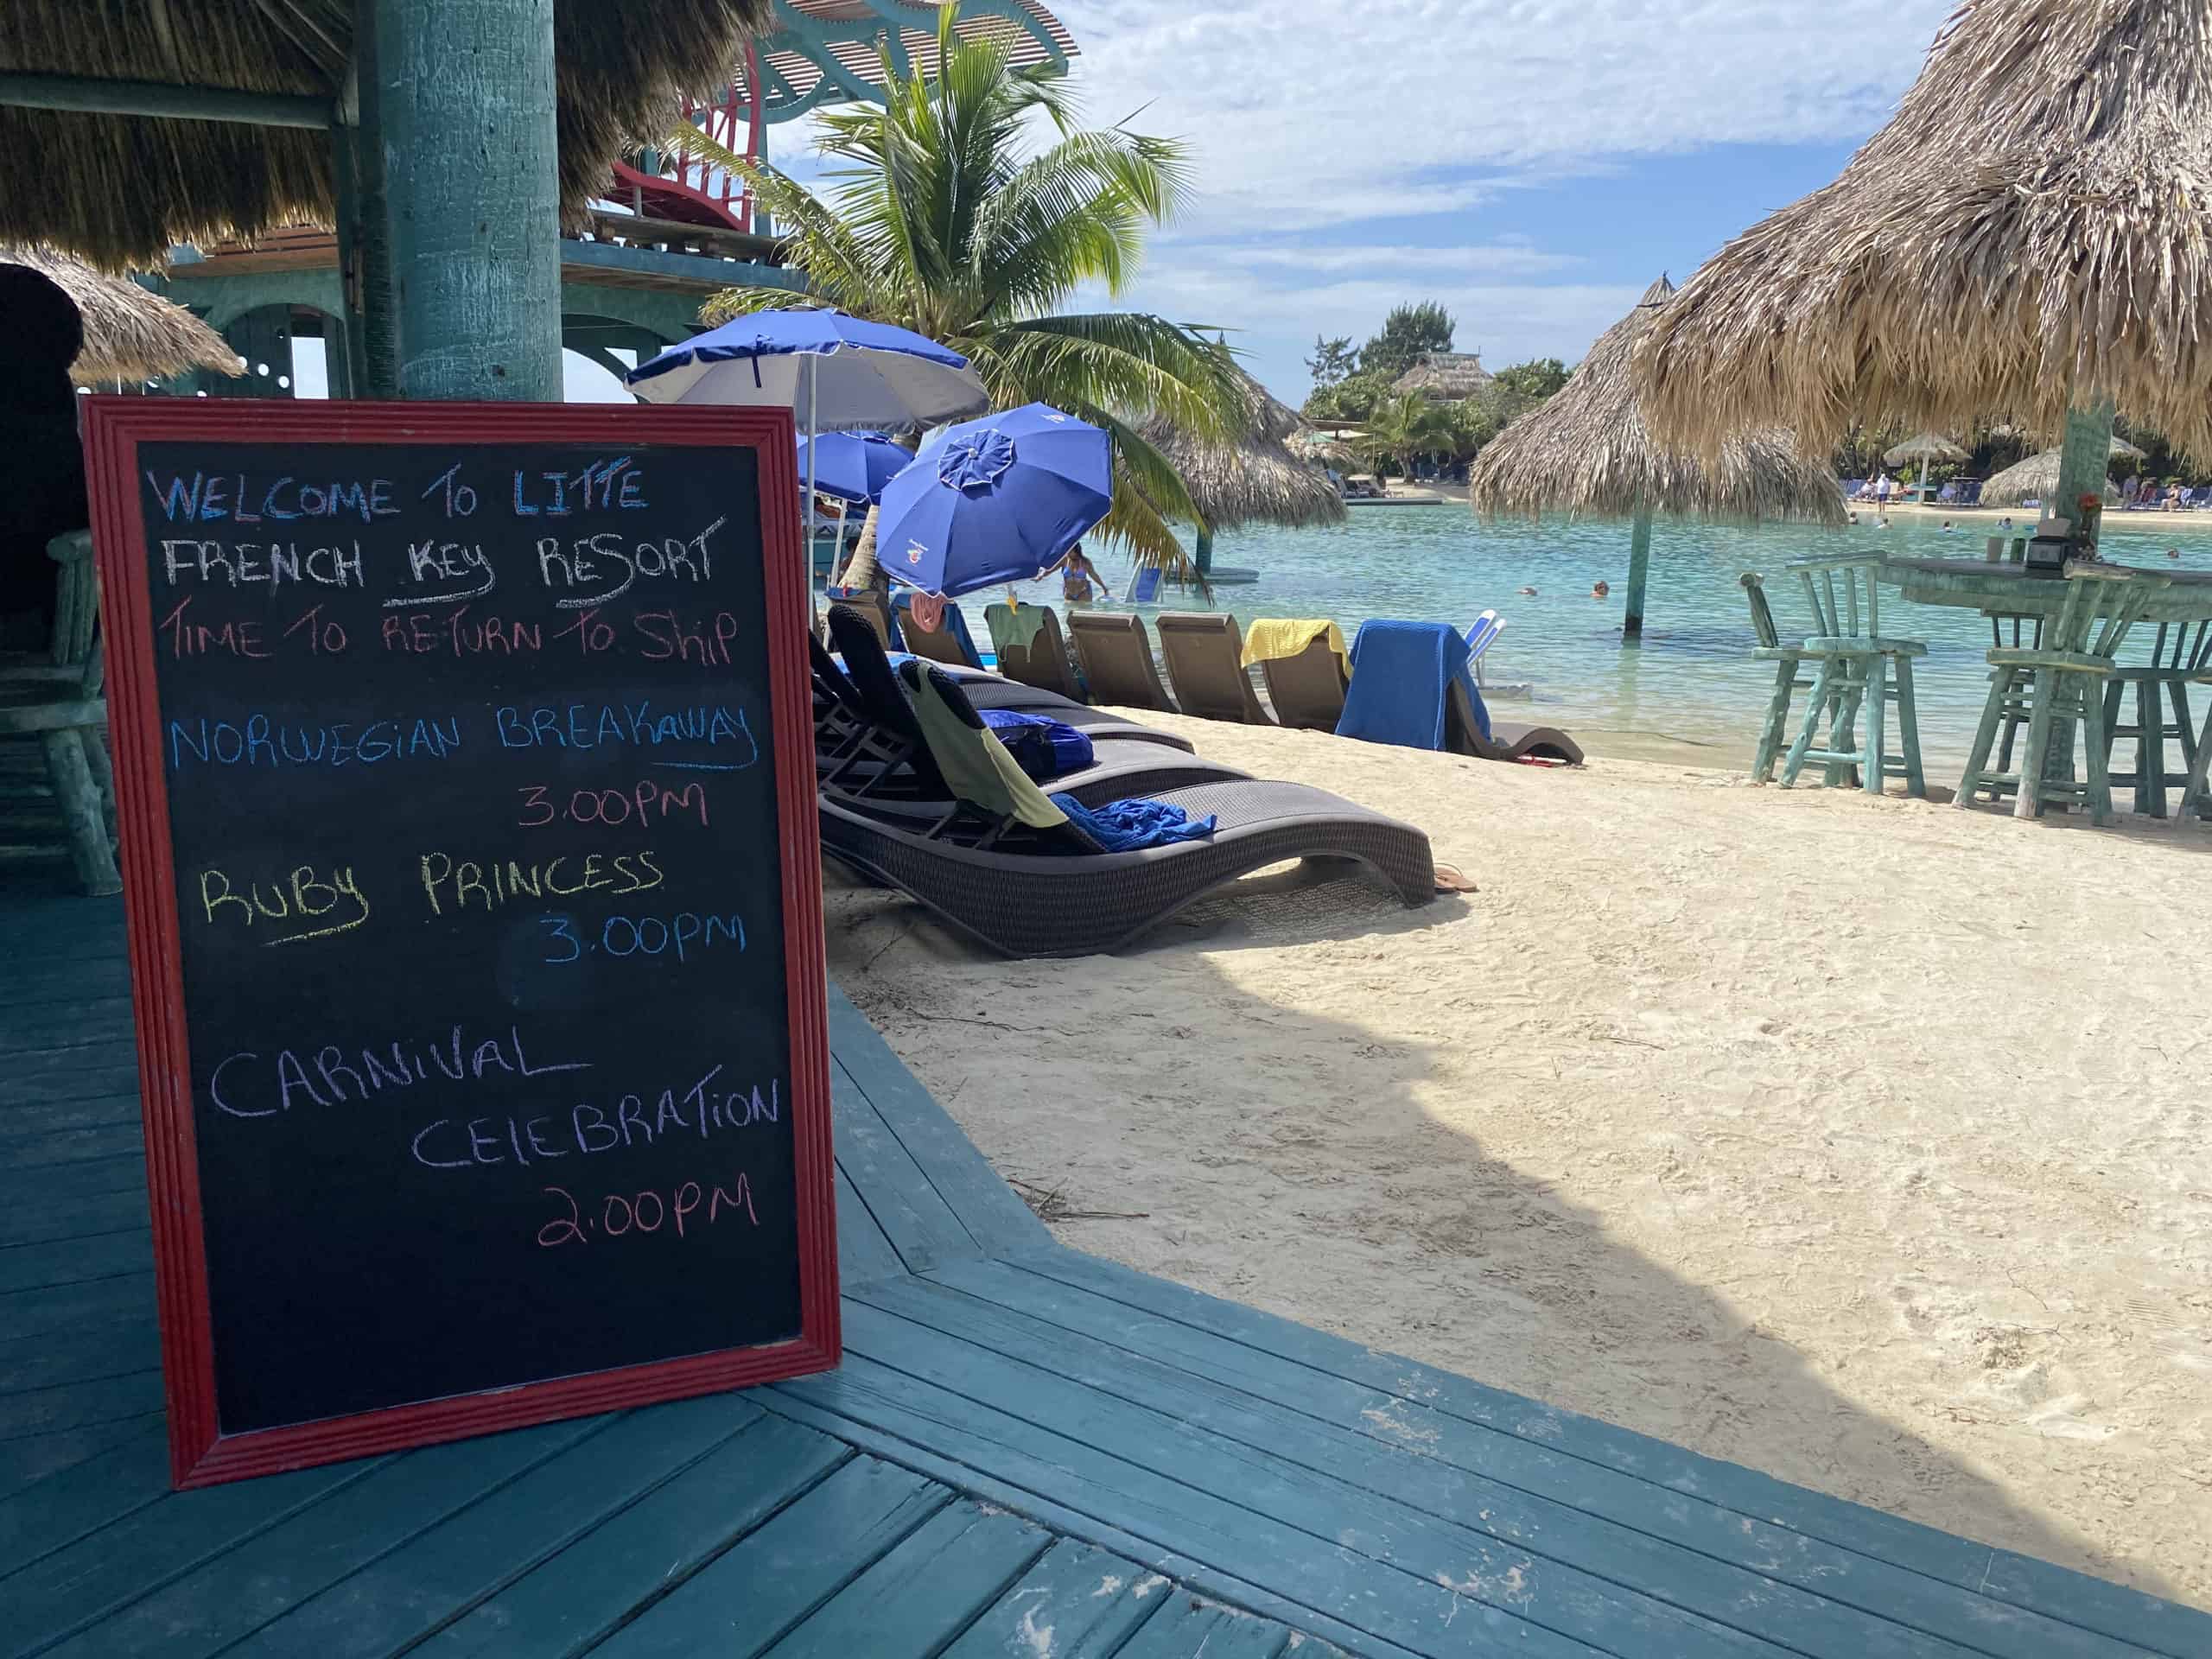 WELCOME TO LITTE
FRENCH KEY RESORT
TIME TO RETURN TO SHIP
NORWEGIAN BREAKAWAY
3.00PM
RUBY PRINCESS
3.00PM
CARNIVAL
CELEBRATION
2.00PM